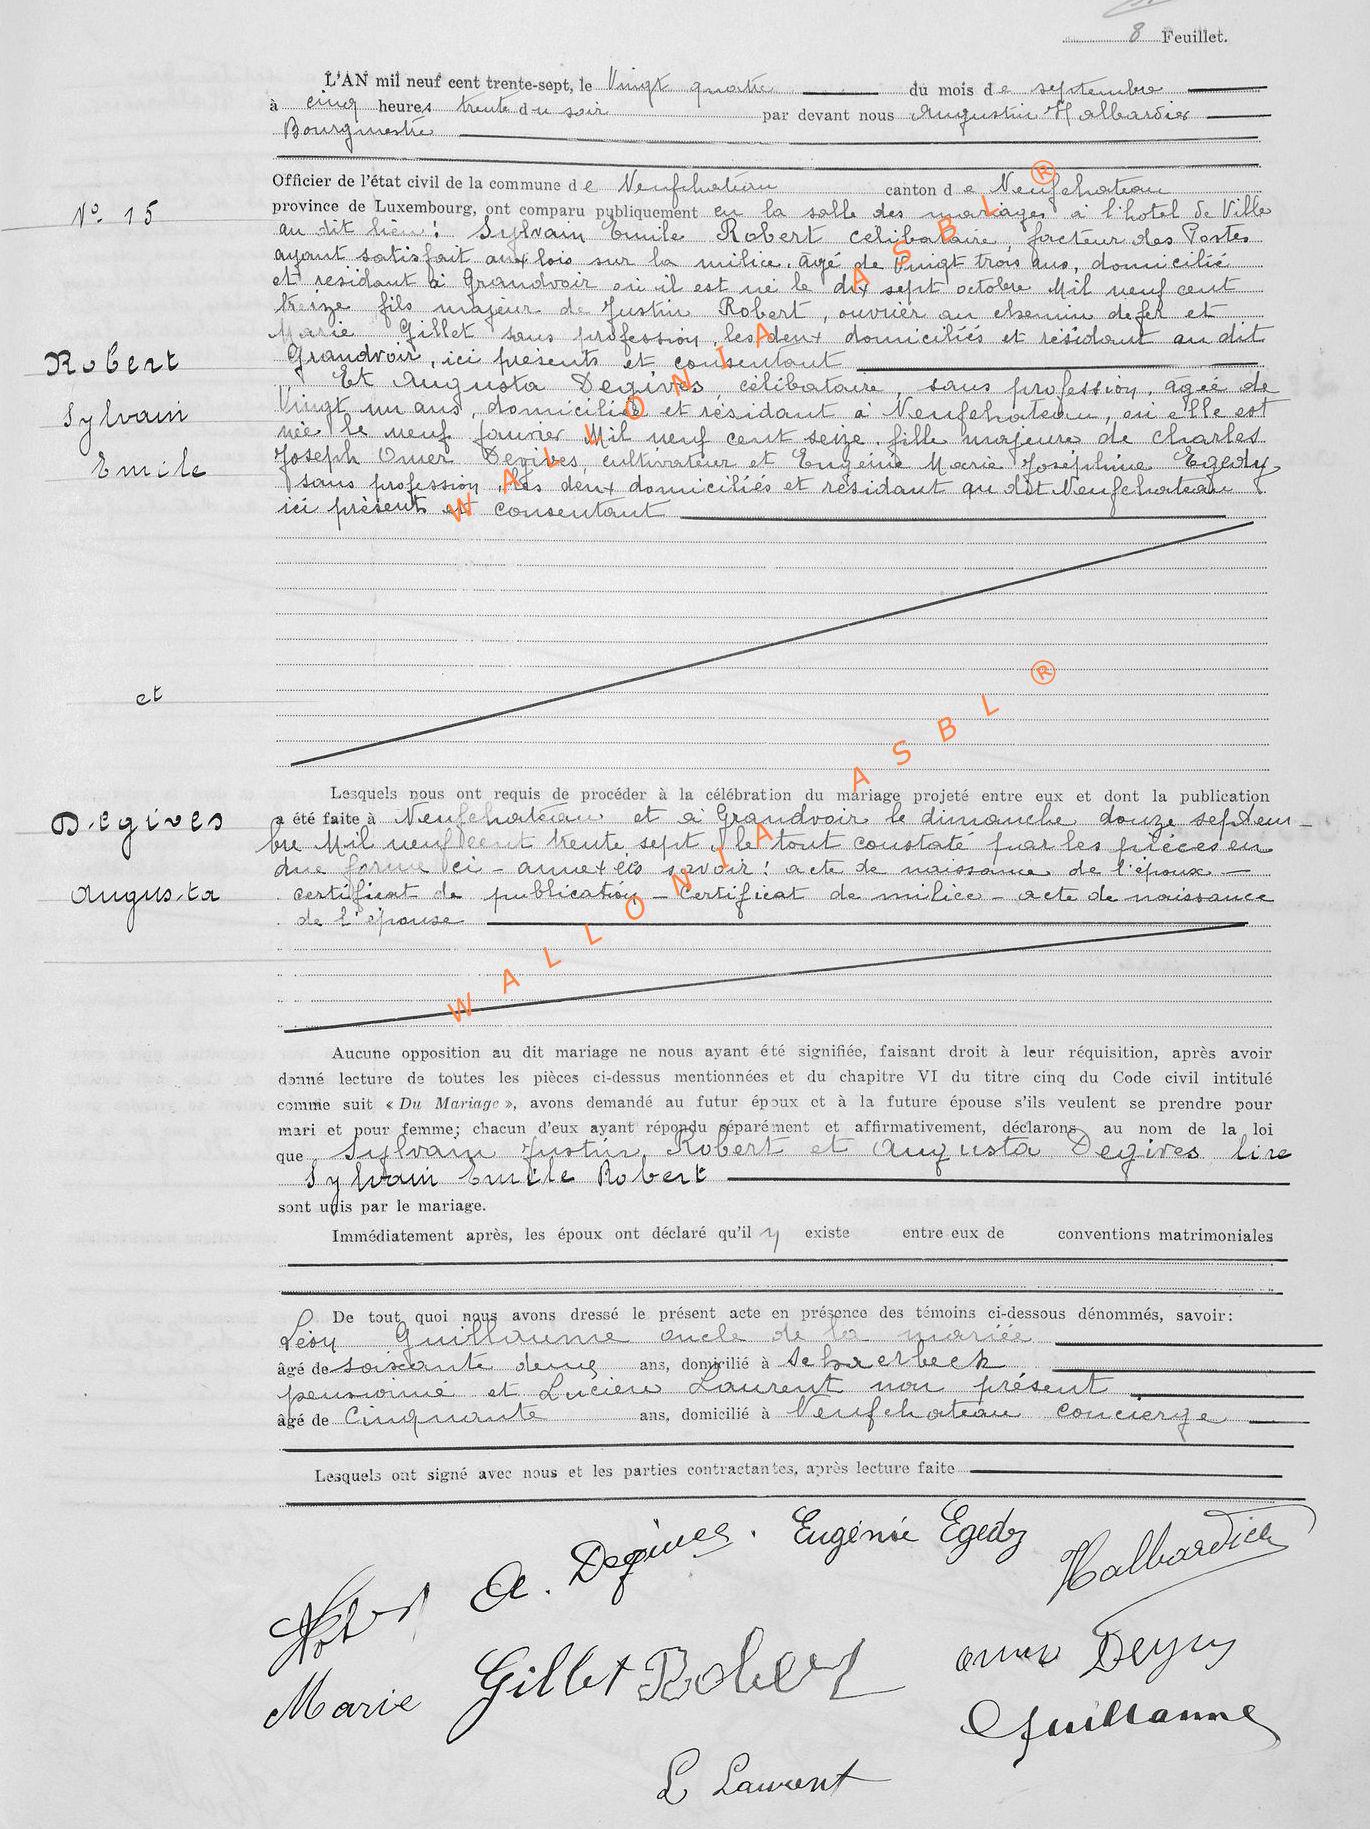 8 Feuillet.
L'AN mil neuf cent trente-sept, le Vingt quatre du mois de septembre
à cinq heures trente du soir par devant nous Augustin Halbardier
Bourgmestre
Officier de l'état civil de la commune de Neufchateau canton de Neufchateau
N° 15
province de Luxembourg, ont comparu publiquement en la salle des mariages à l'hotel de Ville
au dit lieu: Sylvain Emile Robert célibataire, facteur des Postes
ayant satisfait aux lois sur la milice, agé de vingt trois ans, domicilié
et résidant à Grandvoir où il est né le dix sept octobre Mil neuf cent
treize fils majeur de Justin Robert, ouvrier au chemin de fer et
Marie Gillet sans profession, les deux domiciliés et résidant au dit
Grandvoir, ici présents et consentant
Robert
Sylvain
Emile
Et Augusta Degives célibataire, sans profession, agée de
Vingt un ans, domiciliée et résidant à Neufchateau, où elle est
née le neuf janvier Mil neuf cent seize, fille majeure de Charles
Joseph Omer Degives, cultivateur et Eugénie Marie Joséphine Egedy,
sans profession, les deux domiciliés et résidant au dit Neufchateau
ici présents et consentant
et
Degives
Augusta
Lesquels nous ont requis de procéder à la célébration du mariage projeté entre eux et dont la publication
a été faite à Neufchateau et à Grandvoir le dimanche douze septem-
bre Mil neuf cent trente sept, le tout constaté par les pièces en
due forme ci-annexées savoir: acte de naissance de l'époux -
certificat de publication - certificat de milice - acte de naissance
de l'épouse
Aucune opposition au dit mariage ne nous ayant été signifiée, faisant droit à leur réquisition, après avoir
donné lecture de toutes les pièces ci-dessus mentionnées et du chapitre VI du titre cinq du Code civil intitulé
comme suit « Du Mariage », avons demandé au futur époux et à la future épouse s'ils veulent se prendre pour
mari et pour femme; chacun d'eux ayant répondu séparément et affirmativement, déclarons au nom de la loi
que Sylvain Justin Robert et Augusta Degives lire
Sylvain Emile Robert
sont unis par le mariage.
Immédiatement après, les époux ont déclaré qu'il y existe entre eux de conventions matrimoniales
De tout quoi nous avons dressé le présent acte en présence des témoins ci-dessous dénommés, savoir:
Léon Guillaume oncle de la mariée
âgé de soixante deux ans, domicilié à Schaerbeck
pensionné et Lucien Laurent non présent
âgé de Cinquante ans, domicilié à Neufchateau concierge
Lesquels ont signé avec nous et les parties contractantes, après lecture faite
Robert A. Degives. Eugénie Egedy Halbardier
Marie Gillet Robert Omer Degives
Guillaume
L Laurent
WALLONIA ASBL ®
WALLONIA ASBL ®